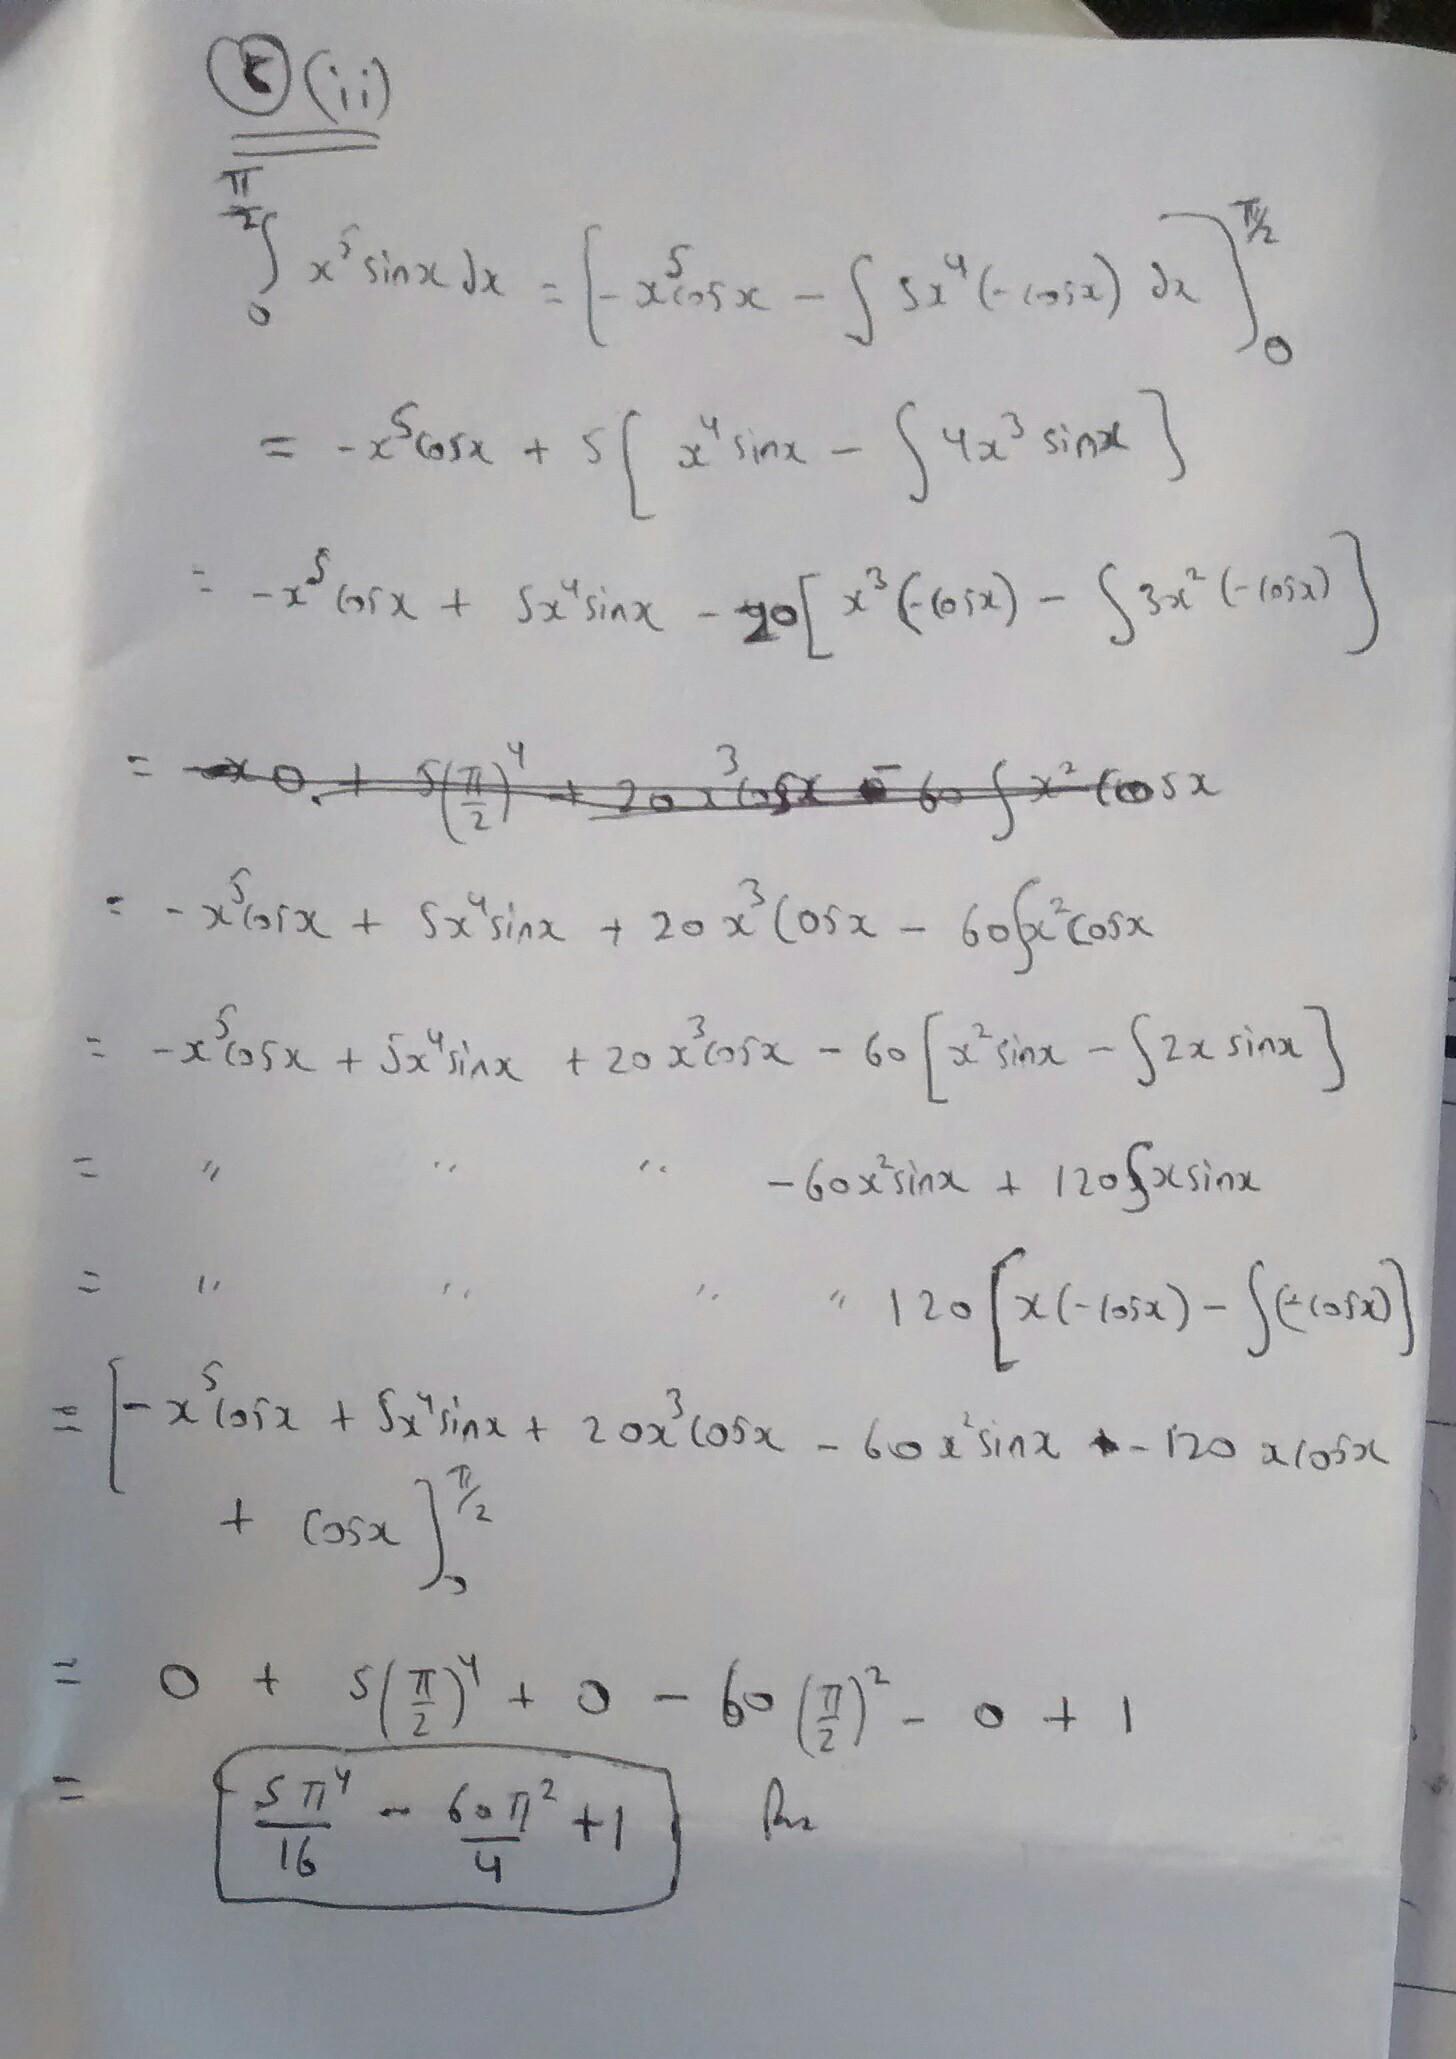 5 (ii)
∫₀^(π/2) x⁵ sinx dx = [-x⁵cosx - ∫ 5x⁴(-cosx) dx]₀^(π/2)
= -x⁵cosx + 5[x⁴sinx - ∫ 4x³ sinx]
= -x⁵cosx + 5x⁴sinx - 20[x³(-cosx) - ∫ 3x²(-cosx)]
= 0 + 5(π/2)⁴ + 20x³cosx - 60∫x² cosx
= -x⁵cosx + 5x⁴sinx + 20x³cosx - 60∫x²cosx
= -x⁵cosx + 5x⁴sinx + 20x³cosx - 60[x²sinx - ∫2x sinx]
= " " " -60x²sinx + 120∫xsinx
= " " " " 120[x(-cosx) - ∫(-cosx)]
= [-x⁵cosx + 5x⁴sinx + 20x³cosx - 60x²sinx - 120 xcosx
+ cosx]₀^(π/2)
= 0 + 5(π/2)⁴ + 0 - 60(π/2)² - 0 + 1
= 5π⁴/16 - 60π²/4 + 1